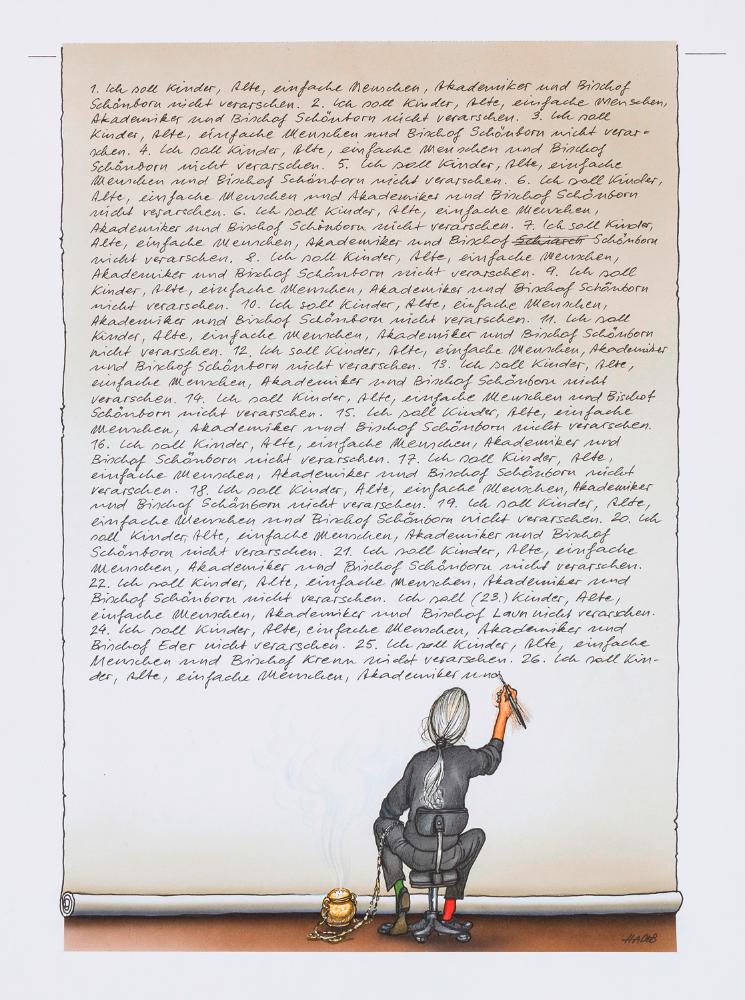 1. Ich soll Kinder, Alte, einfache Menschen, Akademiker und Bischof
Schönborn nicht verarschen. 2. Ich soll Kinder, Alte, einfache Menschen,
Akademiker und Bischof Schönborn nicht verarschen. 3. Ich soll
Kinder, Alte, einfache Menschen und Bischof Schönborn nicht verar=
schen. 4. Ich soll Kinder, Alte, einfache Menschen und Bischof
Schönborn nicht verarschen. 5. Ich soll Kinder, Alte, einfache
Menschen und Bischof Schönborn nicht verarschen. 6. Ich soll Kinder,
Alte, einfache Menschen und Akademiker und Bischof Schönborn
nicht verarschen. 6. Ich soll Kinder, Alte, einfache Menschen,
Akademiker und Bischof Schönborn nicht verarschen. 7. Ich soll Kinder,
Alte, einfache Menschen, Akademiker und Bischof Schönborn
nicht verarschen. 8. Ich soll Kinder, Alte, einfache Menschen,
Akademiker und Bischof Schönborn nicht verarschen. 9. Ich soll
Kinder, Alte, einfache Menschen, Akademiker und Bischof Schönborn
nicht verarschen. 10. Ich soll Kinder, Alte, einfache Menschen,
Akademiker und Bischof Schönborn nicht verarschen. 11. Ich soll
Kinder, Alte, einfache Menschen, Akademiker und Bischof Schönborn
nicht verarschen. 12. Ich soll Kinder, Alte, einfache Menschen, Akademiker
und Bischof Schönborn nicht verarschen. 13. Ich soll Kinder, Alte,
einfache Menschen, Akademiker und Bischof Schönborn nicht
verarschen. 14. Ich soll Kinder, Alte, einfache Menschen und Bischof
Schönborn nicht verarschen. 15. Ich soll Kinder, Alte, einfache
Menschen, Akademiker und Bischof Schönborn nicht verarschen.
16. Ich soll Kinder, Alte, einfache Menschen, Akademiker und
Bischof Schönborn nicht verarschen. 17. Ich soll Kinder, Alte,
einfache Menschen, Akademiker und Bischof Schönborn nicht
verarschen. 18. Ich soll Kinder, Alte, einfache Menschen, Akademiker
und Bischof Schönborn nicht verarschen. 19. Ich soll Kinder, Alte,
einfache Menschen und Bischof Schönborn nicht verarschen. 20. Ich
soll Kinder, Alte, einfache Menschen, Akademiker und Bischof
Schönborn nicht verarschen. 21. Ich soll Kinder, Alte, einfache
Menschen, Akademiker und Bischof Schönborn nicht verarschen.
22. Ich soll Kinder, Alte, einfache Menschen, Akademiker und
Bischof Schönborn nicht verarschen. Ich soll (23.) Kinder, Alte,
einfache Menschen, Akademiker und Bischof Laun nicht verarschen.
24. Ich soll Kinder, Alte, einfache Menschen, Akademiker und
Bischof Eder nicht verarschen. 25. Ich soll Kinder, Alte, einfache
Menschen und Bischof Krenn nicht verarschen. 26. Ich soll Kin-
der, Alte, einfache Menschen, Akademiker und
HADEB